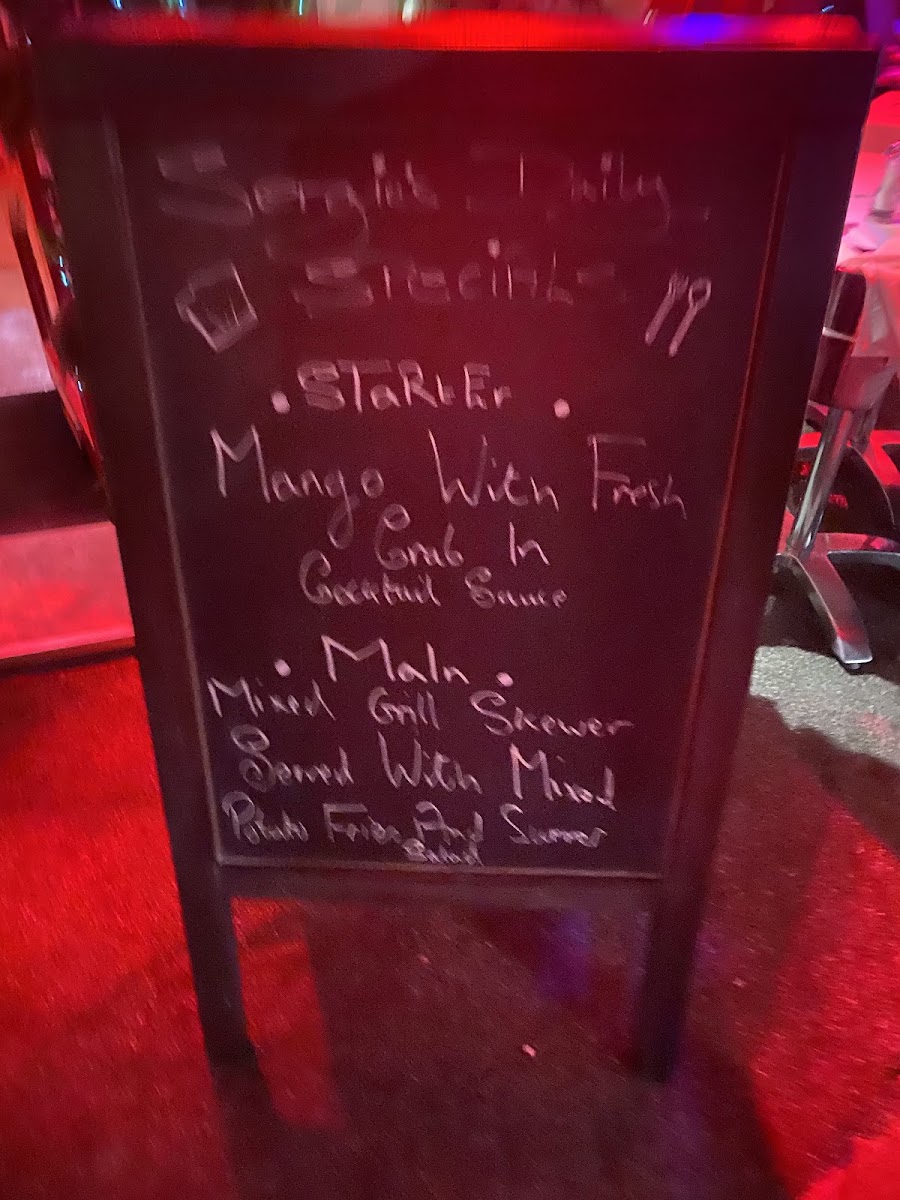 Sergio's Daily
Specials
• STaRtEr •
Mango With Fresh
Crab In
Cocktail Sauce
• MaIn •
Mixed Grill Skewer
Served With Mixed
Potato Fries And Summer
Salad